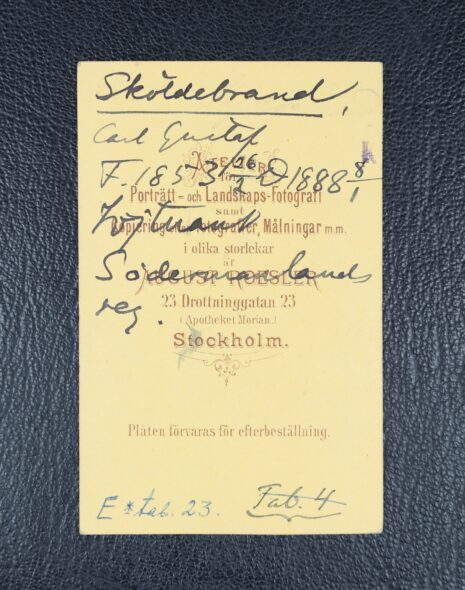 Sköldebrand,
Carl Gustaf
F. 1853 26/2 D. 1888 8/1
ATELIER
för
Porträtt- och Landskaps-Fotografi
samt
Kopieringar af Fotografier, Målningar m.m.
i olika storlekar
af
Löjtnant
AUGUST ROESLER
Södermanlands
reg.
23 Drottninggatan 23
(Apotheket Morian.)
Stockholm.
Plåten förvaras för efterbeställning.
E * tab. 23. Tab. 4